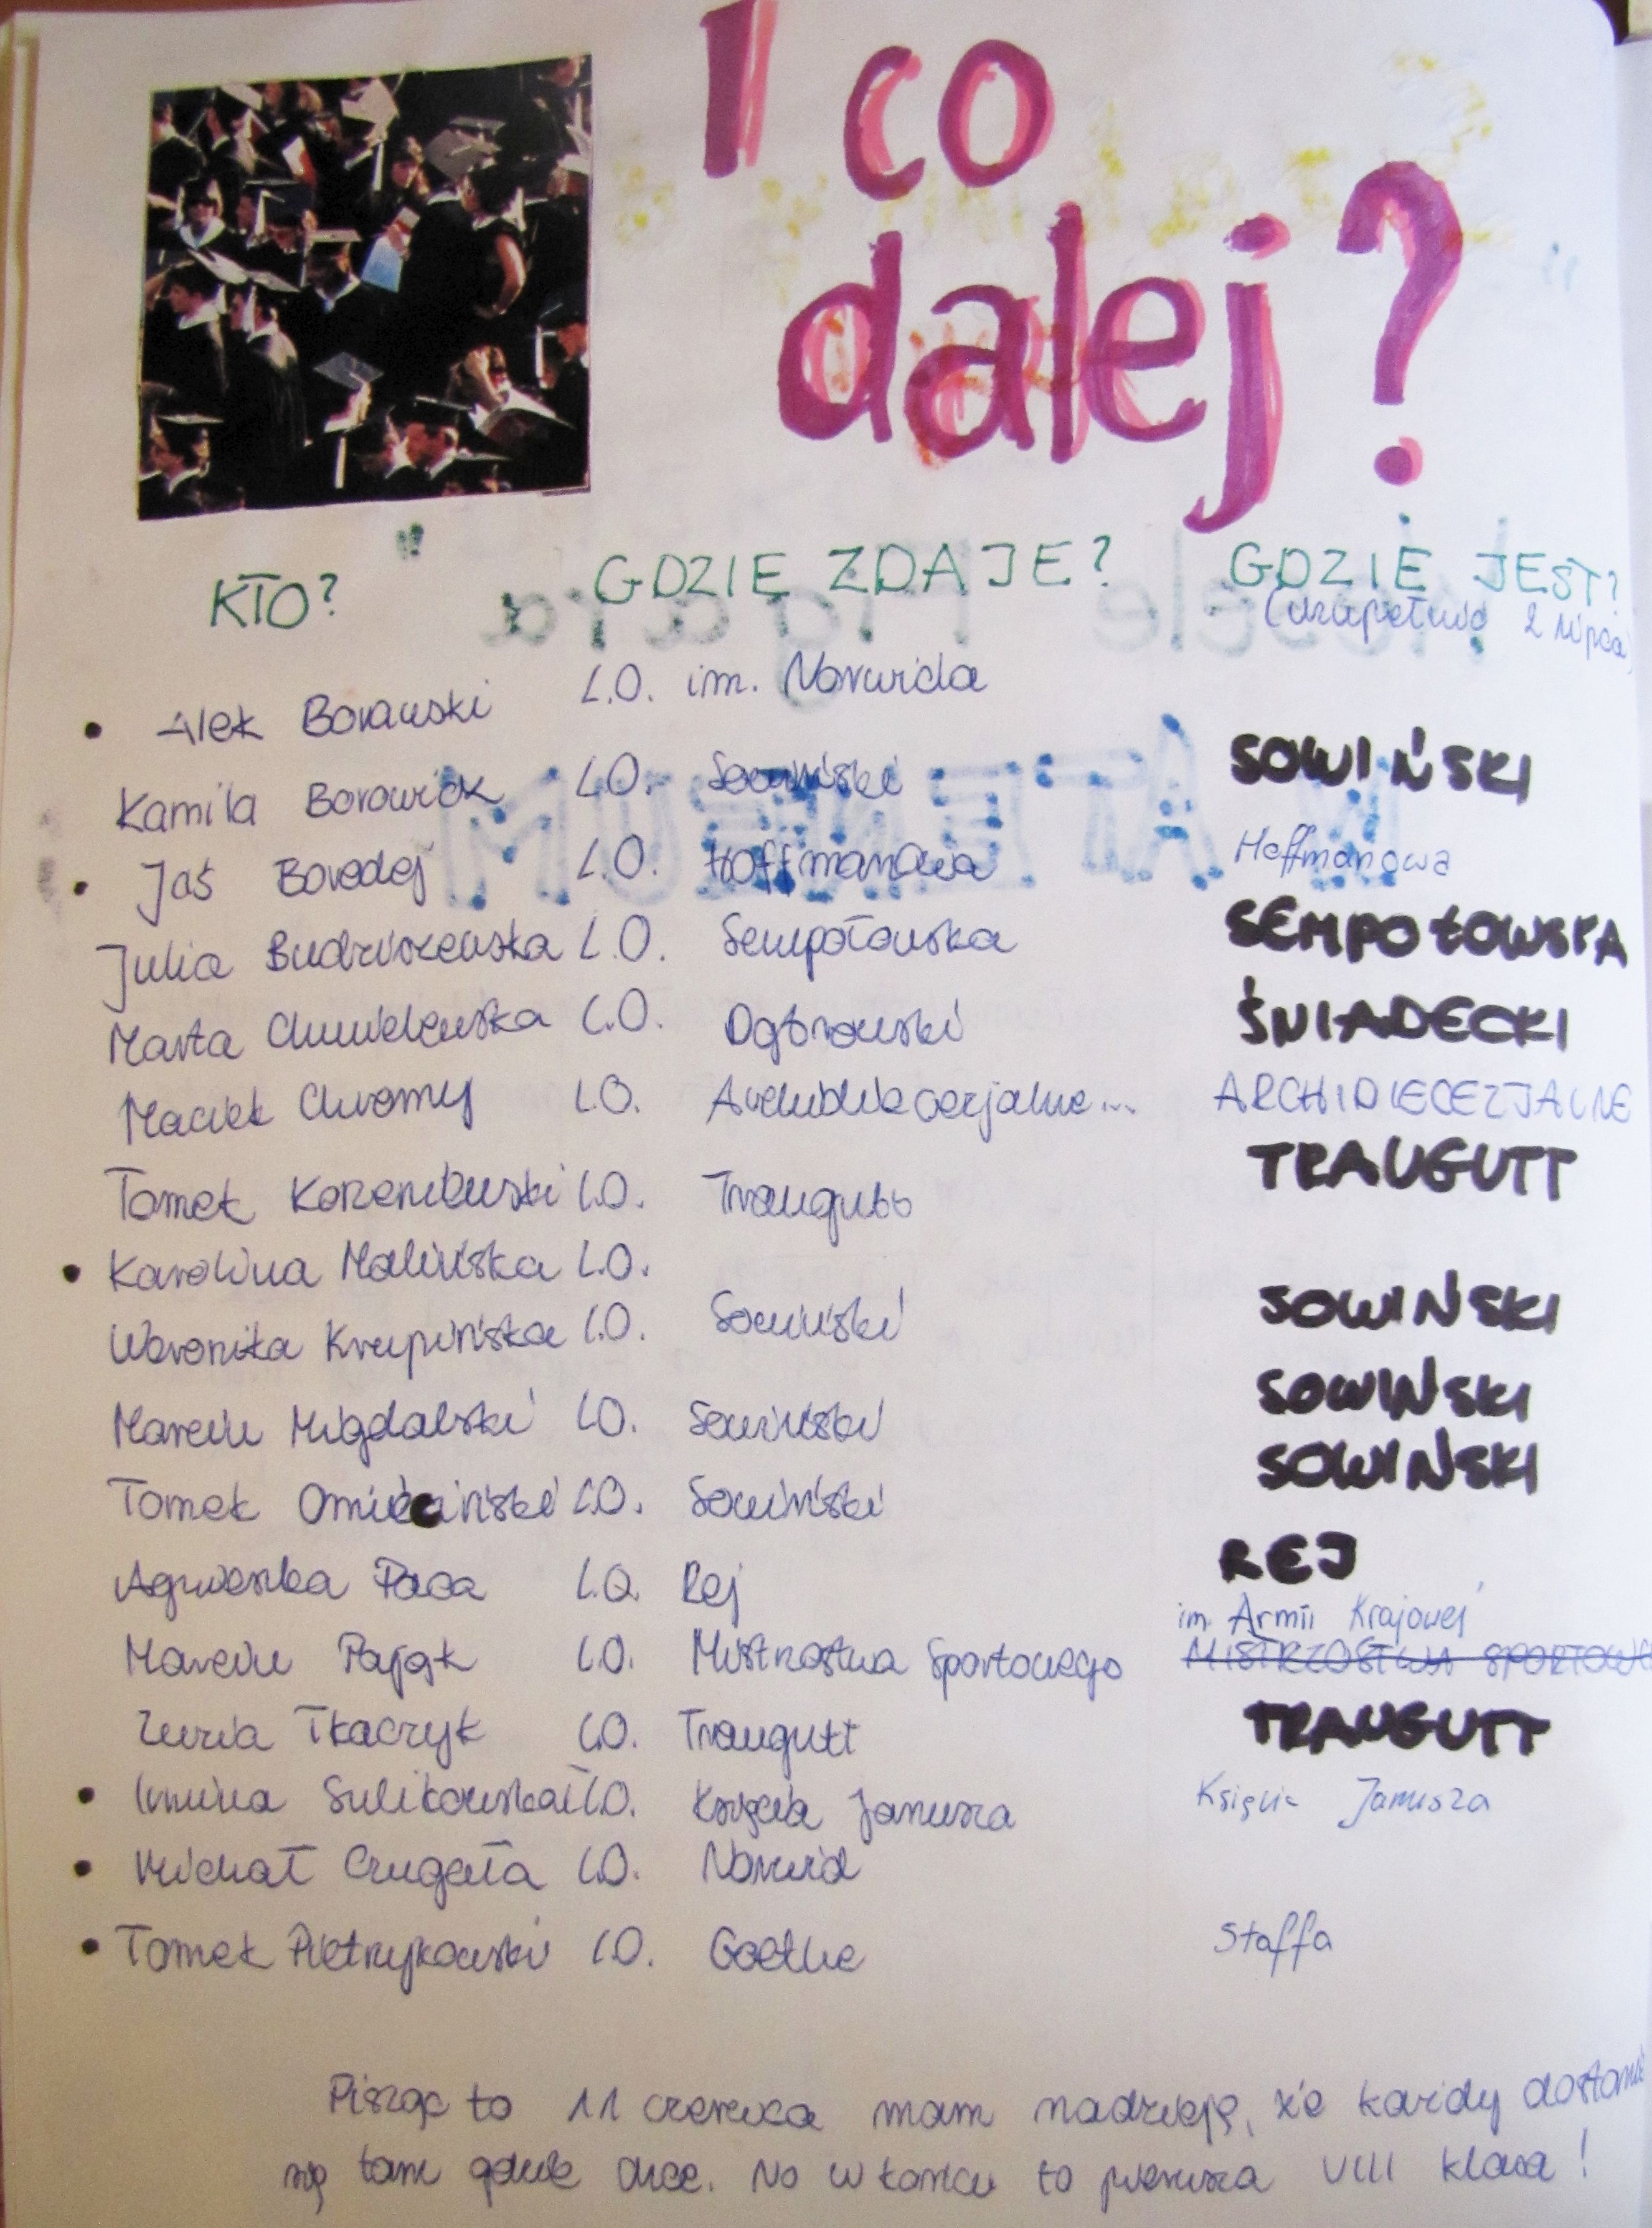 I co
dalej?
KTO? GDZIE ZDAJE? GDZIE JEST?
(uzupełnić 2 lipca)
• Alek Borawski L.O. im. Norwida
Kamila Borowick L.O. Sowiński SOWIŃSKI
• Jaś Borodej L.O. Hoffmanowa Hoffmanowa
Julia Budziszewska L.O. Sempołowska SEMPOŁOWSKA
Marta Chmielewska L.O. Dąbrowski ŚNIADECKI
Maciek Chromy L.O. Archidiecezjalne... ARCHIDIECEZJALNE
Tomek L.O. Traugutt TRAUGUTT
• Karolina Malińska L.O.
Weronika Krupińska L.O. Sowiński SOWIŃSKI
Marcin Migdalski L.O. Sowiński SOWIŃSKI
Tomek Omieciński L.O. Sowiński SOWIŃSKI
Agnieszka Paca L.O. Rej REJ
im. Armii Krajowej
Marcin Pająk L.O. Mistrzostwa Sportowego MISTRZOSTWA SPORTOWE
Zuzia Tkaczyk L.O. Traugutt TRAUGUTT
• Sulikowska L.O. Księcia Janusza Księcia Janusza
• Michał Czugała L.O. Norwid
• Tomek Pietrzykowski L.O. Goethe Staffa
Pisząc to 11 czerwca mam nadzieję, że każdy dostanie
się tam gdzie chce. No w końcu to pierwsza VIII klasa!